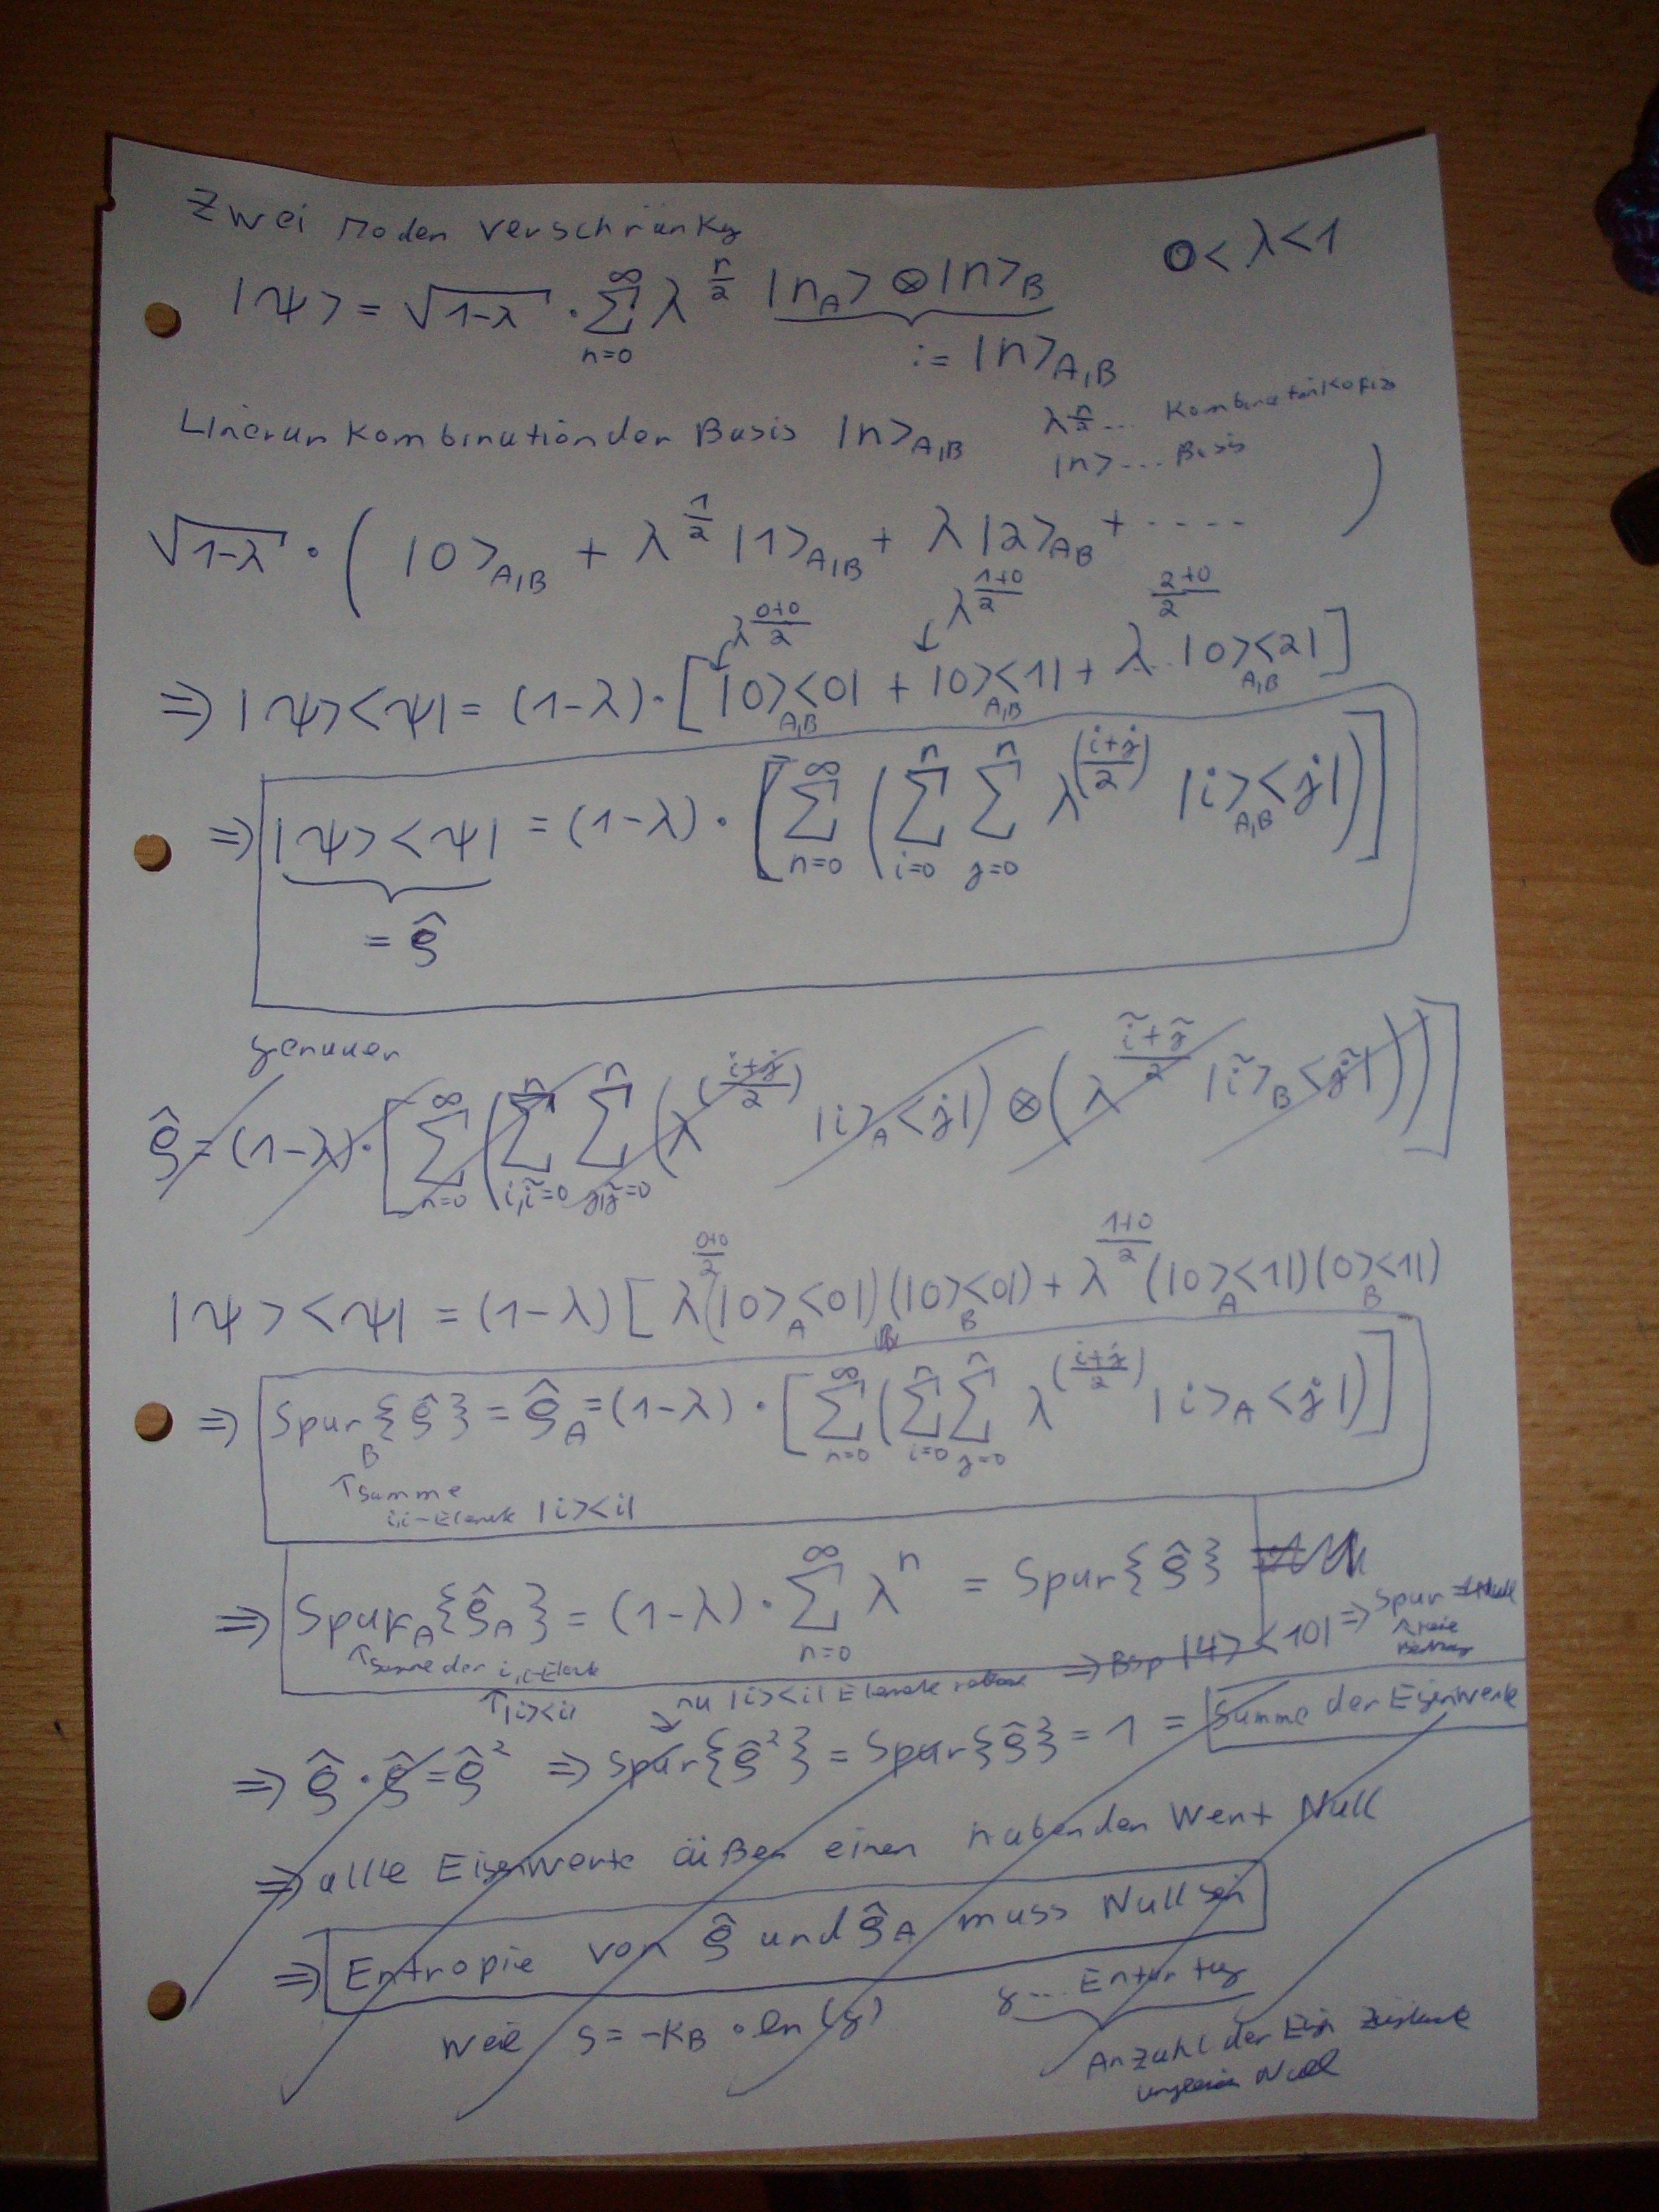 Zwei Moden Verschränkg
0 < λ < 1
|ψ> = √(1-λ) · Σ_{n=0}^{∞} λ^{n/2} |n_A> ⊗ |n>_B
:= |n>_{A,B}
Linearkombination der Basis |n>_{A,B}
λ^{n/2} ... Kombinationkofiz
|n> ... Basis
√(1-λ) · ( |0>_{A,B} + λ^{1/2} |1>_{A,B} + λ |2>_{AB} + ---- )
λ^{(0+0)/2} λ^{(1+0)/2} (2+0)/2
⇒ |ψ><ψ| = (1-λ) · [ |0><0|_{A,B} + |0><1|_{A,B} + λ · |0><2|_{A,B} ]
⇒ |ψ><ψ| = (1-λ) · [ Σ_{n=0}^{∞} ( Σ_{i=0}^{n} Σ_{j=0}^{n} λ^{((i+j)/2)} |i><j|_{A,B} ) ]
= ρ̂
genauer
ρ̂ = (1-λ) · [ Σ_{n=0}^{∞} ( Σ_{i,ĩ=0}^{n} Σ_{j,j̃=0}^{n} ( λ^{((i+j)/2)} |i>_A<j| ) ⊗ ( λ^{(ĩ+j̃)/2} |ĩ>_B<j̃| ) ) ]
|ψ><ψ| = (1-λ) [ λ^{(0+0)/2} (|0>_A<0|)(|0>_B<0|) + λ^{(1+0)/2} (|0>_A<1|)(0>_B<1|)
⇒ Spur_B{ρ̂} = ρ̂_A = (1-λ) · [ Σ_{n=0}^{∞} ( Σ_{i=0}^{n} Σ_{j=0}^{n} λ^{((i+j)/2)} |i>_A<j| ) ]
↑Summe
i,i-Elemente |i><i|
⇒ Spur_A{ρ̂_A} = (1-λ) · Σ_{n=0}^{∞} λ^n = Spur{ρ̂}
↑Summe der i,i-Elemte
↑|i><i|
nu |i><i| Elemente
⇒ Bsp |4><10| ⇒ Spur = Null
⇒ ρ̂ · ρ̂ = ρ̂² ⇒ Spur{ρ̂²} = Spur{ρ̂} = 1 = Summe der Eigenwerte
⇒ alle Eigenwerte außer einen haben den Wert Null
⇒ Entropie von ρ̂ und ρ̂_A muss Null sein
weil S = -K_B · ln(g)
g ... Entartug
Anzahl der Eign Zustände
ungleich Null